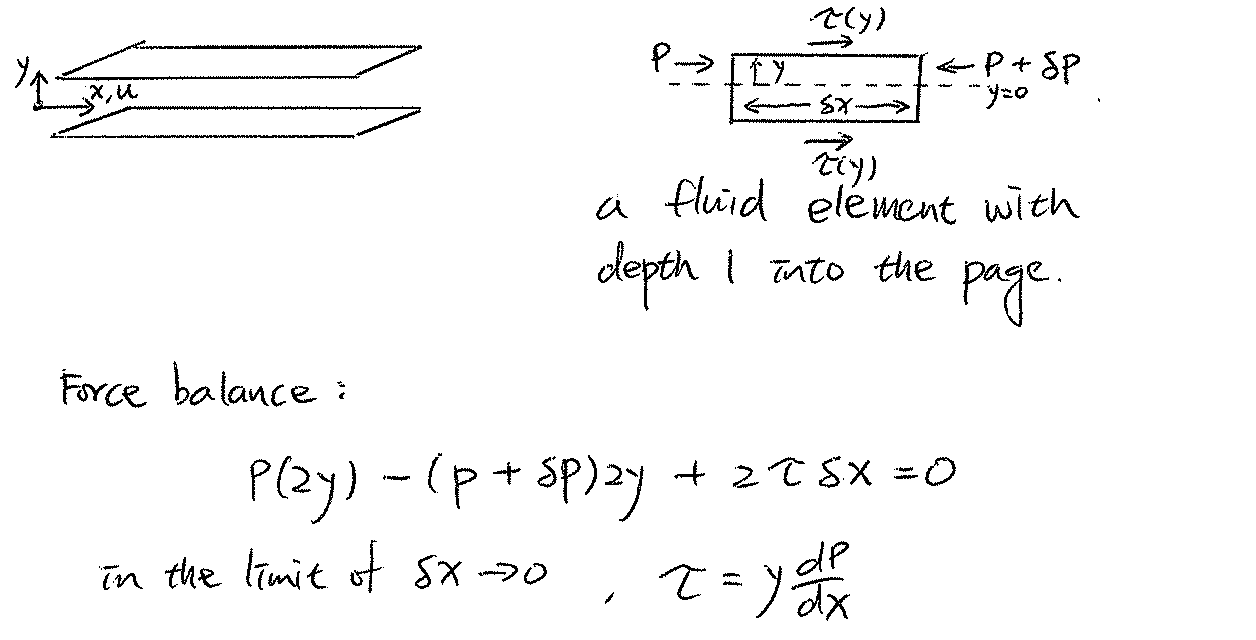 y
x, u
τ(y)
P
y
P + δP
y=0
δx
τ(y)
a fluid element with
depth 1 into the page.
Force balance :
P(2y) - (p + δP)2y + 2τδx = 0
in the limit of δx → 0 , τ = y dP/dx